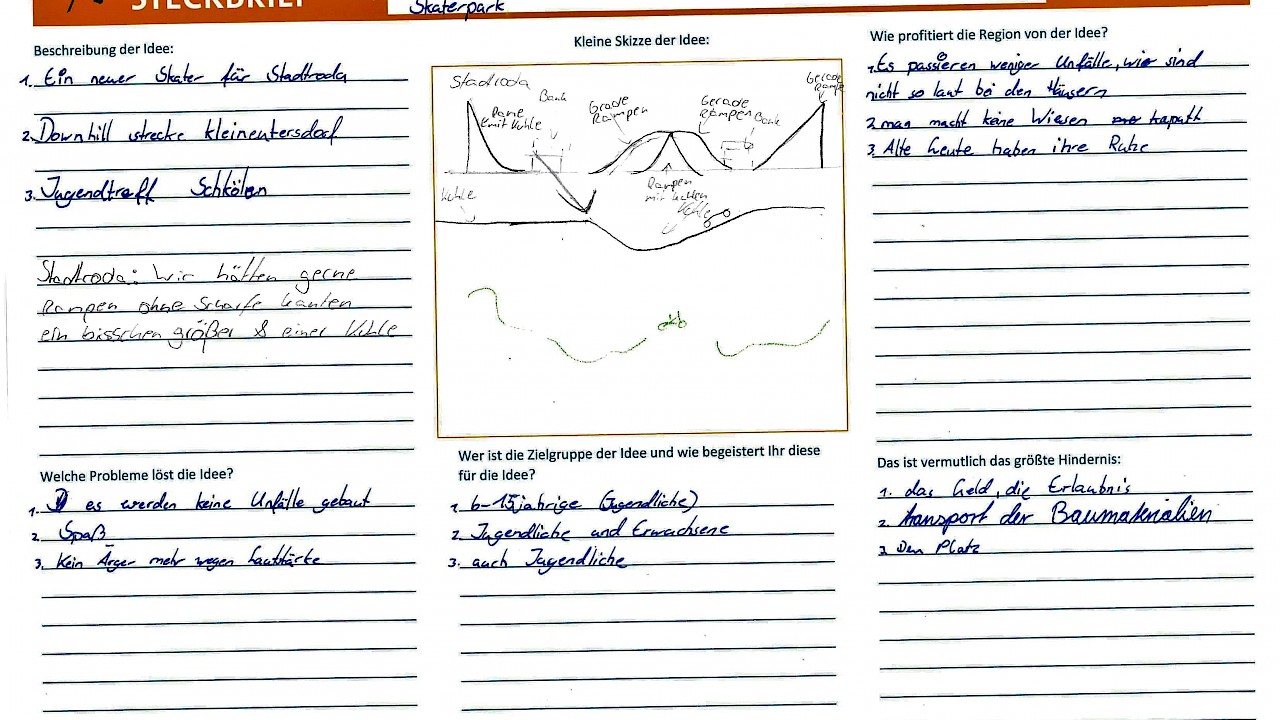 STECKBRIEF
Skaterpark
Beschreibung der Idee:
1. Ein neuer Skater für Stadtroda
2. Downhill strecke kleineutersdorf
3. Jugendtreff Schkölen
Stadtroda: Wir hätten gerne
Rampen ohne Scharfe kanten
ein bisschen größer & einer Kuhle
Kleine Skizze der Idee:
Stadtroda
Bank
mit Kuhle
Grade
Rampen
Gerade
Rampen
Bank
Gerade
Rampe
Kuhle
Rampen
mit
Kuhle
Wie profitiert die Region von der Idee?
1. Es passieren weniger Unfälle, wir sind
nicht so laut bei den Häusern
2. man macht keine Wiesen kapath
3. Alte Leute haben ihre Ruhe
Welche Probleme löst die Idee?
1. es werden keine Unfälle gebaut
2. Spaß
3. Kein Ärger mehr wegen Lautstärke
Wer ist die Zielgruppe der Idee und wie begeistert Ihr diese
für die Idee?
1. 6-15 jährige (Jugendliche)
2. Jugendliche und Erwachsene
3. auch Jugendliche
Das ist vermutlich das größte Hindernis:
1. das Geld, die Erlaubnis
2. transport der Baumaterialien
3. Den Platz